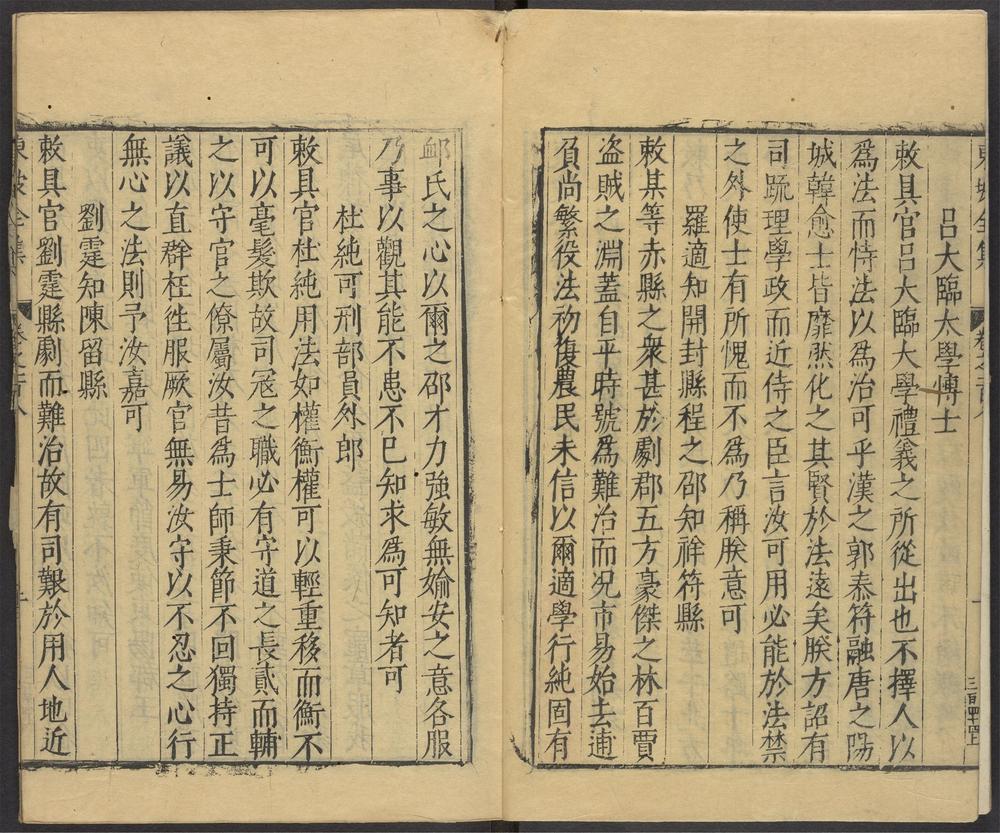 東坡全集 卷之一百八
呂大臨太學博士
敕具官呂大臨大學禮義之所從出也不擇人以
爲法而恃法以爲治可乎漢之郭泰符融唐之陽
城韓愈士皆靡然化之其賢於法遠矣朕方詔有
司疏理學政而近侍之臣言汝可用必能於法禁
之外使士有所愧而不爲乃稱朕意可
羅適知開封縣程之邵知祥符縣
敕某等赤縣之衆甚於劇郡五方豪傑之林百賈
盗賊之淵蓋自平時號爲難治而况市易始去逋
負尚繁役法初復農民未信以爾適學行純固有
邺氏之心以爾之邵才力強敏無媮安之意各服
乃事以觀其能不患不已知求爲可知者可
杜純可刑部員外郎
敕具官杜純用法如權衡權可以輕重移而衡不
可以毫髮欺故司冦之職必有守道之長貳而輔
之以守官之僚屬汝昔爲士師秉節不回獨持正
議以直群枉徃服厥官無易汝守以不忍之心行
無心之法則予汝嘉可
劉霆知陳留縣
敕具官劉霆縣劇而難治故有司艱於用人地近
東坡全集 卷之一百八